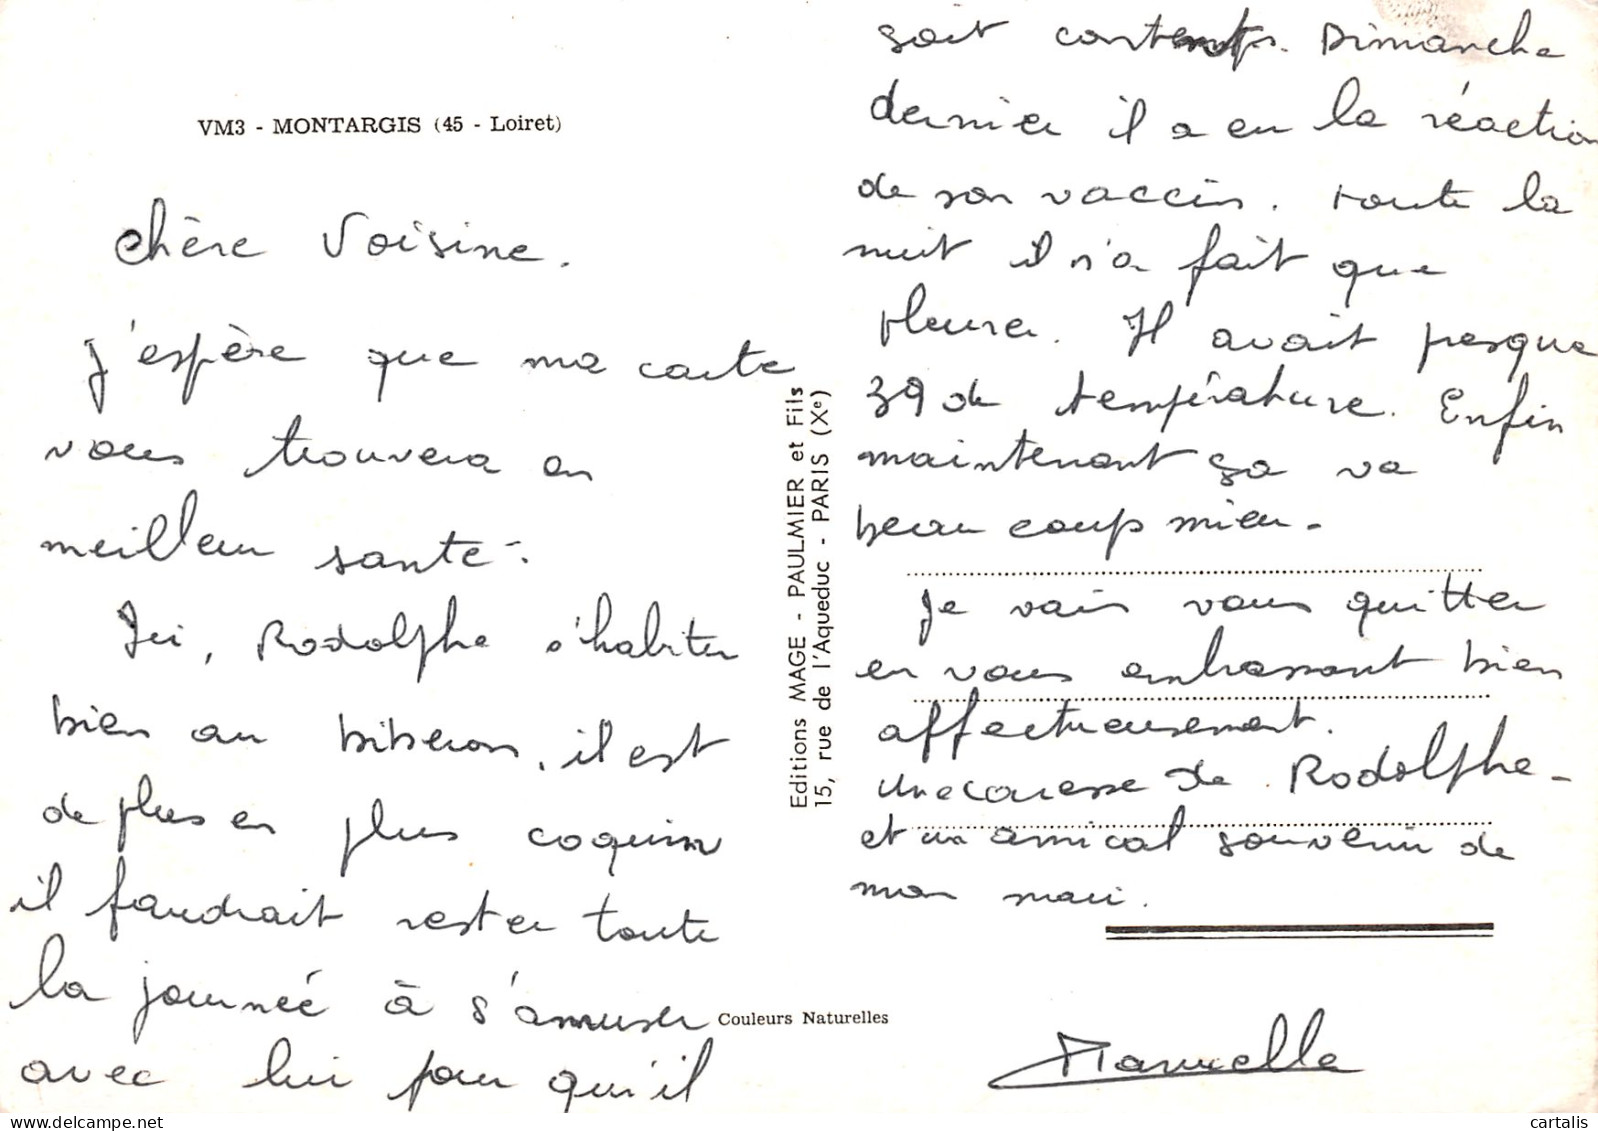 VM3 - MONTARGIS (45 - Loiret)
chère Voisine.
j'espère que ma carte
vous trouvera en
meilleur santé.
Ici, Rodolphe s'habitu
bien au biberon, il est
de plus en plus coquin
il faudrait rester toute
la journeé à s'amuser
avec lui pour qu'il
soit content. Dimanche
dernier il a eu la réaction
de son vaccin. toute la
nuit il n'a fait que
pleurer. Il avait presque
39 de température. Enfin
maintenant ça va
beau coup mieu.
Je vais vous quitter
en vous embrassant bien
affectueusement.
une caresse de Rodolphe
et un amical souvenir de
mon mari.
Manuelle
Editions MAGE - PAULMIER et Fils
15, rue de l'Aqueduc - PARIS (Xe)
Couleurs Naturelles
cartalis